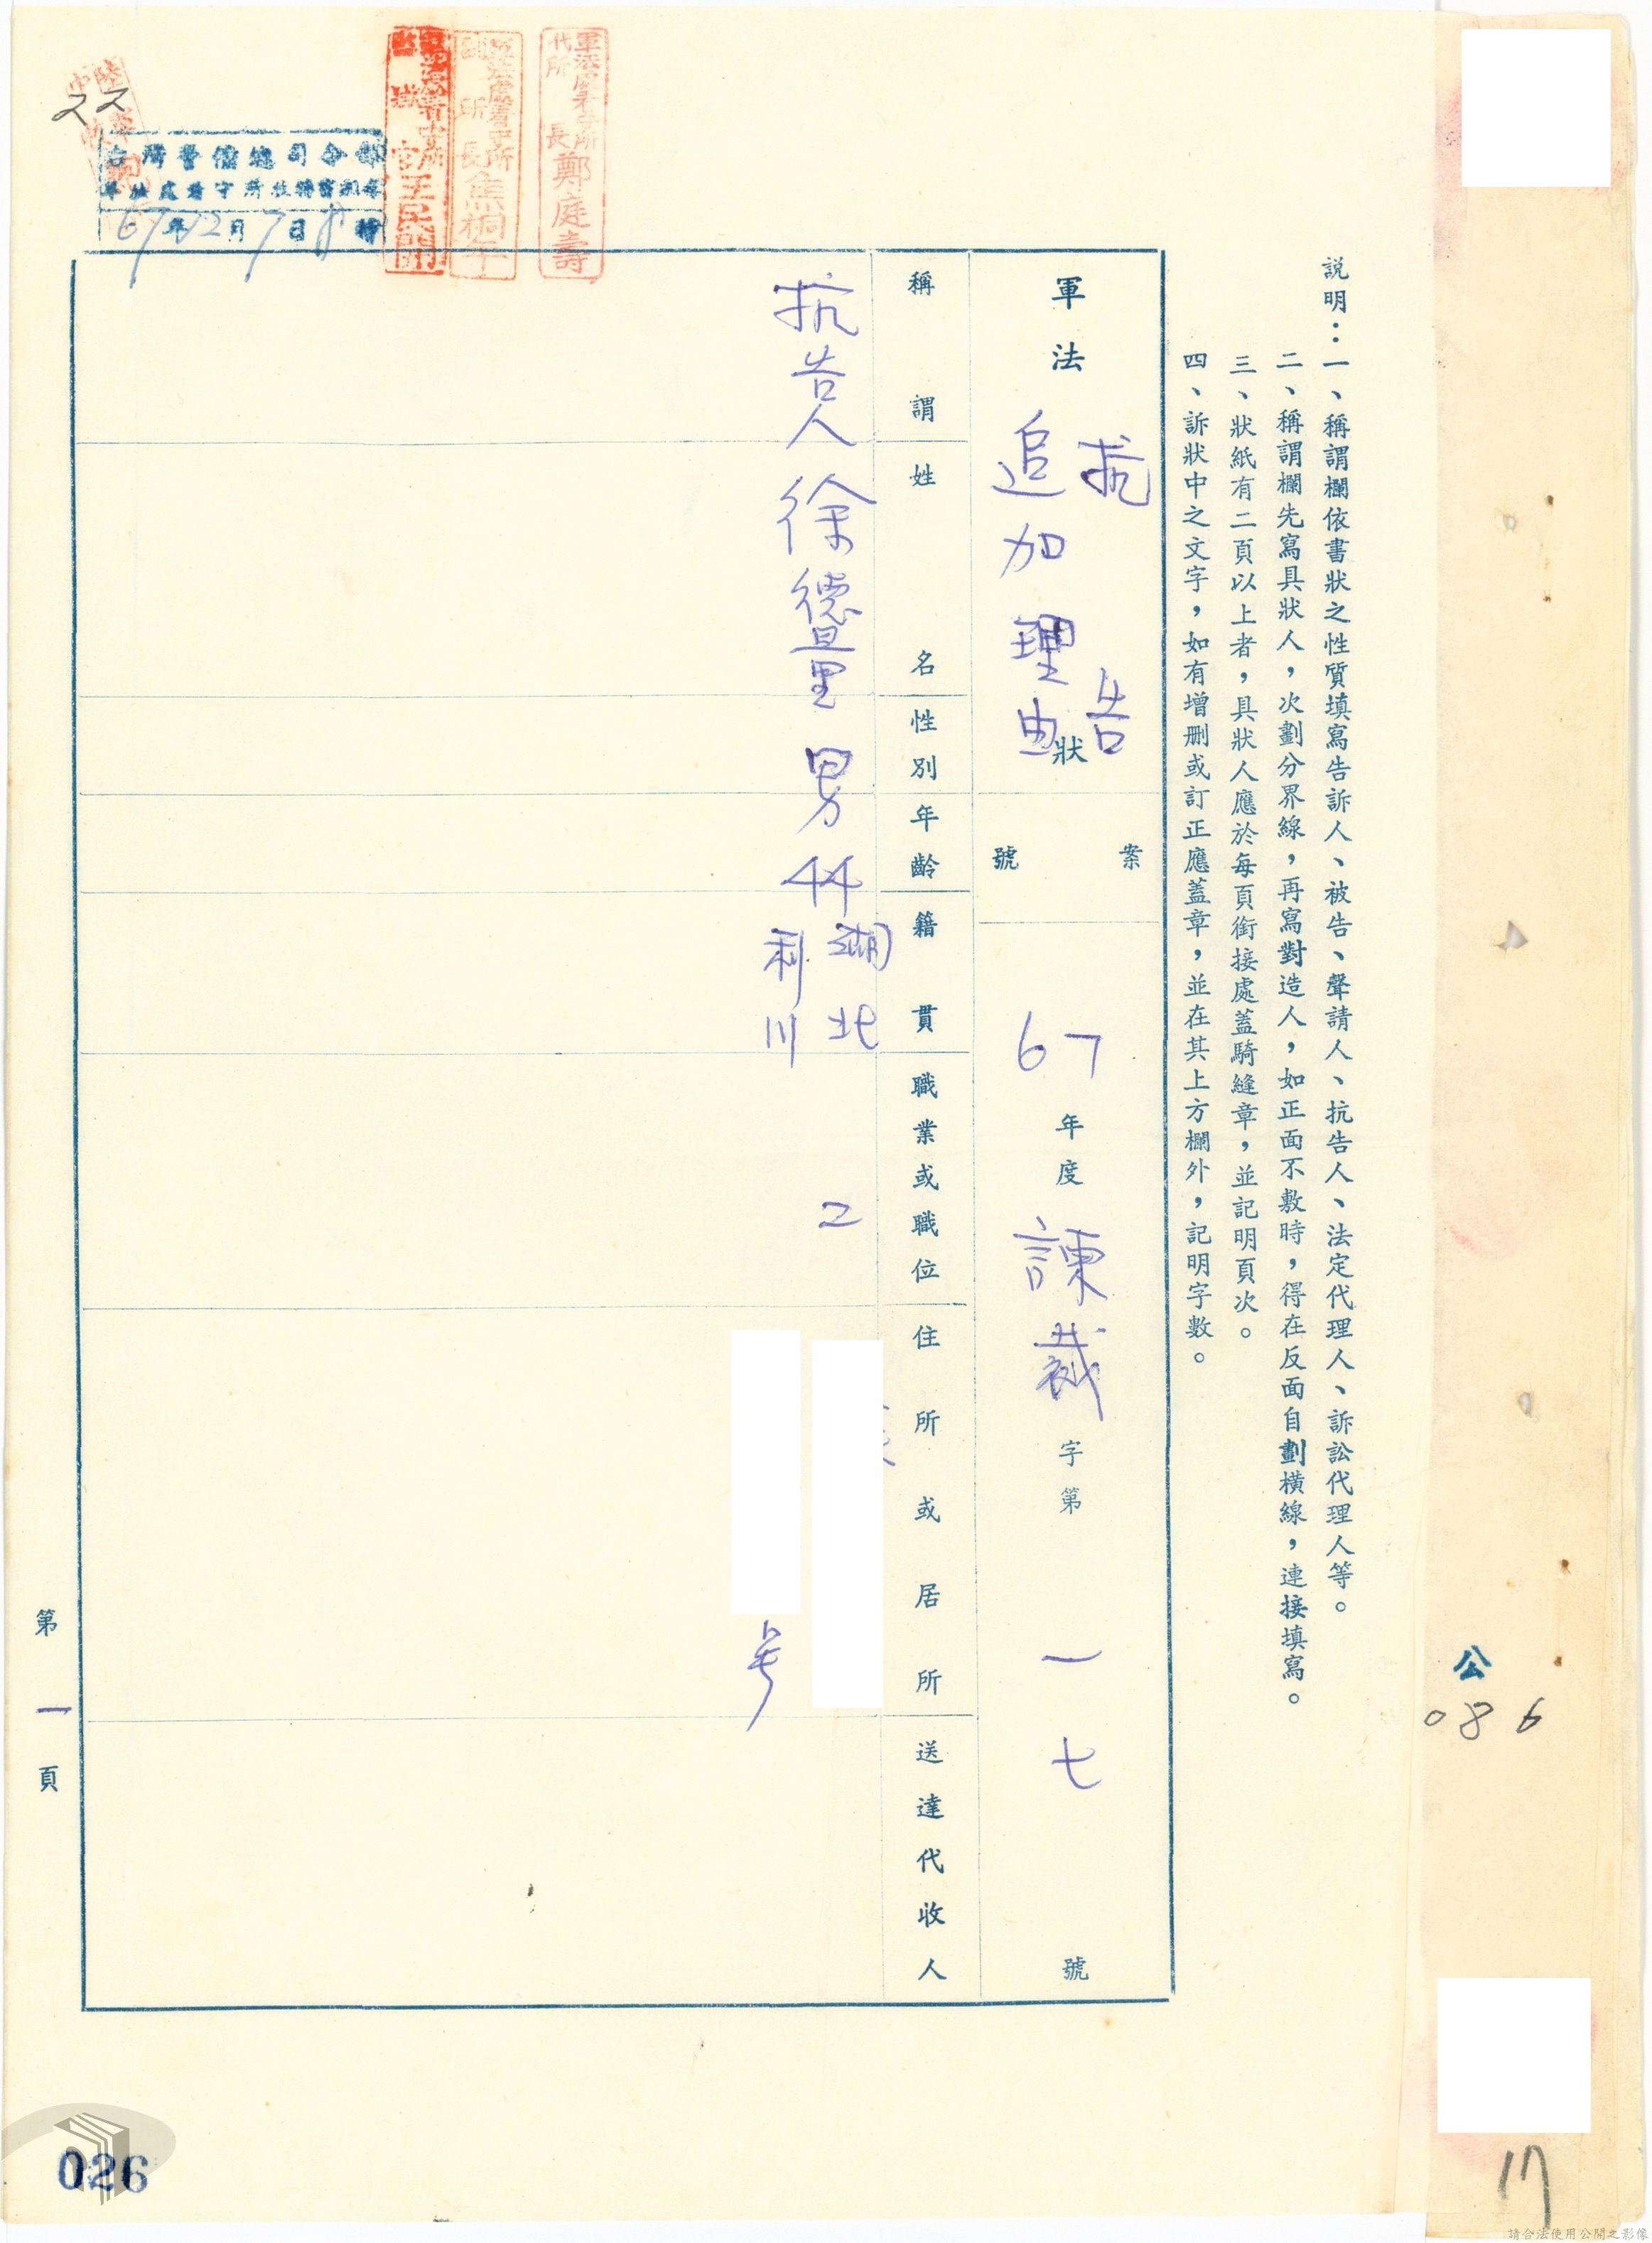 說明：一、稱謂欄依書狀之性質填寫告訴人、被告、聲請人、抗告人、法定代理人、訴訟代理人等。
二、稱謂欄先寫具狀人，次劃分界線，再寫對造人，如正面不敷時，得在反面自劃橫線，連接填寫。
三、狀紙有二頁以上者，具狀人應於每頁銜接處蓋騎縫章，並記明頁次。
四、訴狀中之文字，如有增刪或訂正應蓋章，並在其上方欄外，記明字數。
軍法 抗告 追加理由 狀
案號
67 年度 諫裁 字第 一七 號
稱謂
姓名
性別
年齡
籍貫
職業或職位
住所或居所
送達代收人
抗告人
徐德
男
44
湖北
利川
号
軍法處看守所
代所長 鄭庭壽
軍法處看守所
副所長 焦桐
王民開
22
台灣警備總司令部
67年12月7日8時
第一頁
公
086
026
17
請合法使用公開之影像